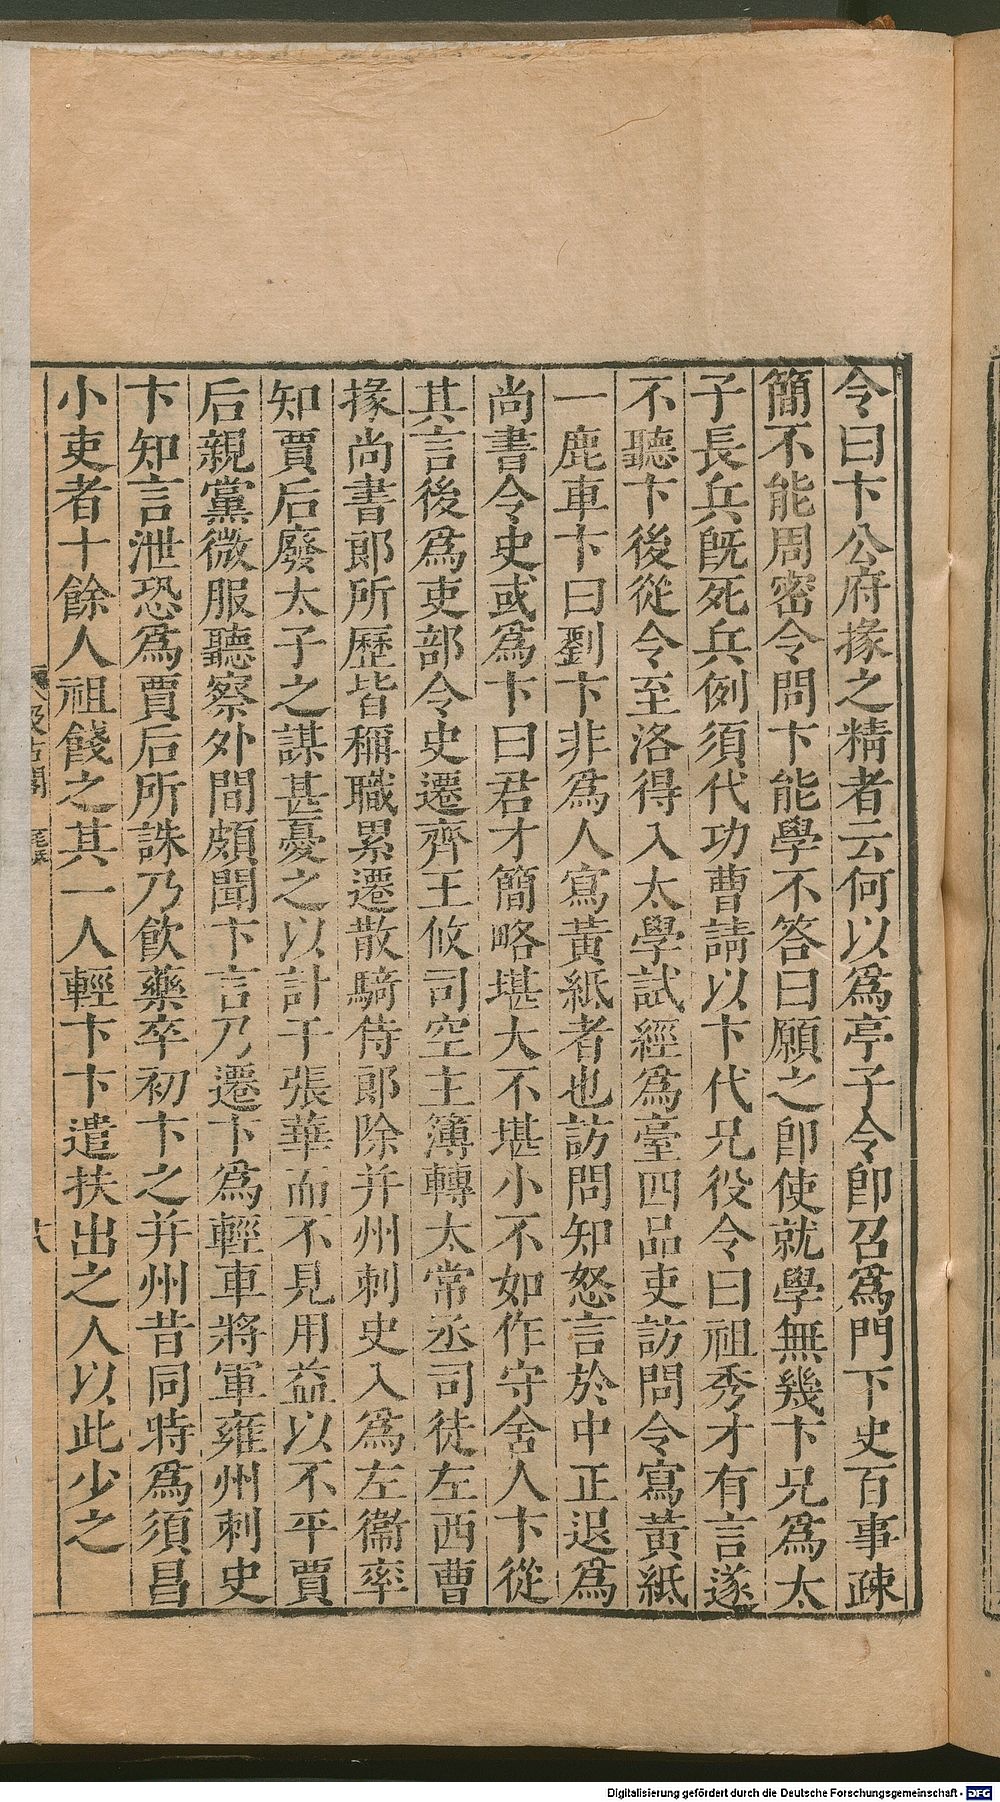 令曰卞公府掾之精者云何以爲亭子令卽召爲門下史百事疎
簡不能周密令問卞能學不答曰願之卽使就學無幾卞兄爲太
子長兵旣死兵例須代功曹請以卞代兄役令曰祖秀才有言遂
不聽卞後從令至洛得入太學試經爲臺四品吏訪問令寫黃紙
一鹿車卞曰劉卞非爲人寫黃紙者也訪問知怒言於中正退爲
尚書令史或爲卞曰君才簡略堪大不堪小不如作守舍人卞從
其言後爲吏部令史遷齊王攸司空主簿轉太常丞司徒左西曹
掾尚書郎所歷皆稱職累遷散騎侍郎除并州刺史入爲左衞率
知賈后廢太子之謀甚憂之以計干張華而不見用益以不平賈
后親黨微服聽察外間頗聞卞言乃遷卞爲輕車將軍雍州刺史
卞知言泄恐爲賈后所誅乃飮藥卒初卞之并州昔同時爲須昌
小吏者十餘人祖餞之其一人輕卞卞遣扶出之人以此少之
Digitalisierung gefördert durch die Deutsche Forschungsgemeinschaft - DFG